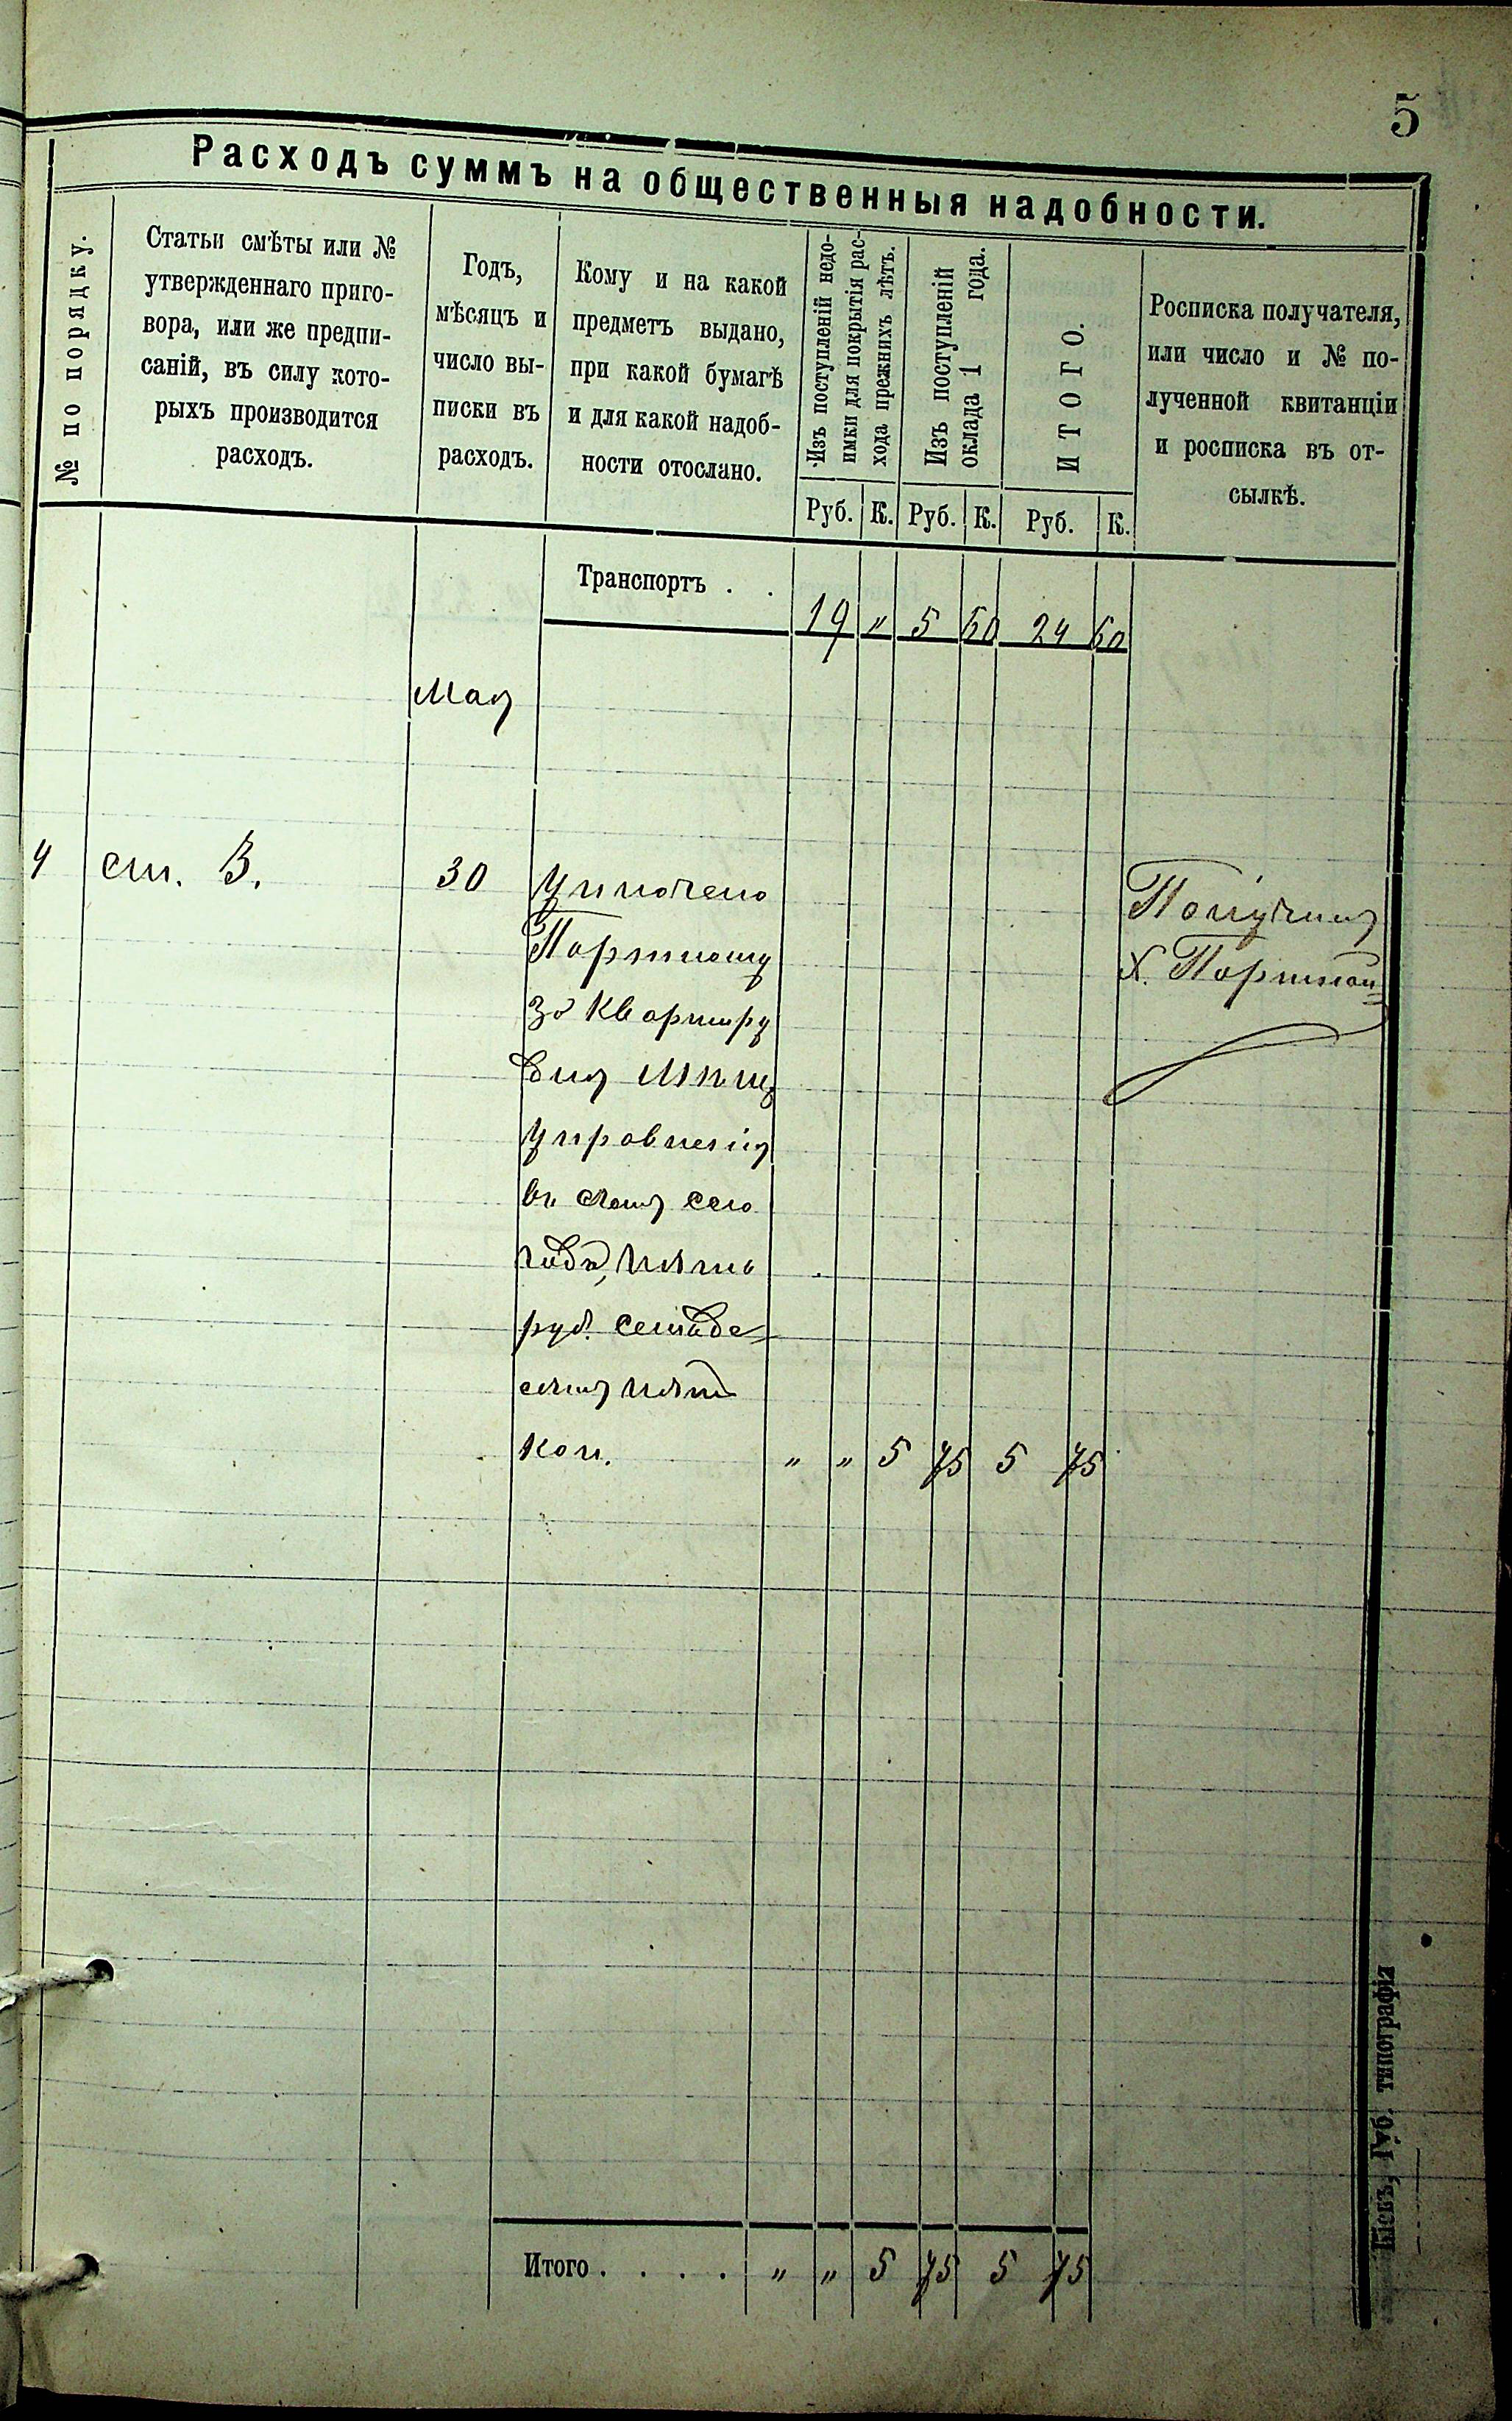 5
Расходъ суммъ на общественныя надобности.
№ по порядку.
Статьи смѣты или №
утвержденнаго приго-
вора, или же предпи-
саній, въ силу кото-
рыхъ производится
расходъ.
Годъ,
мѣсяцъ и
число вы-
писки въ
расходъ.
Кому и на какой
предметъ выдано,
при какой бумагѣ
и для какой надоб-
ности отослано.
Изъ поступленій недо-
имки для покрытія рас-
хода прежнихъ лѣтъ.
Изъ поступленій
оклада 1 года.
ИТОГО.
Росписка получателя,
или число и № по-
лученной квитанціи
и росписка въ от-
сылкѣ.
Руб. К. Руб. К. Руб. К.
Транспортъ . . 19 " 5 60 24 60
Мая
4 ст. 3. 30 Уплочено
Портному
за квартиру
для Мѣщ
управленія
въ сего
года, пять
руб. семьде-
сятъ пять
коп. " " 5 75 5 75
Получилъ
Х. Портной
Итого . . . . " " 5 75 5 75
Кіевъ, Губ. типографія